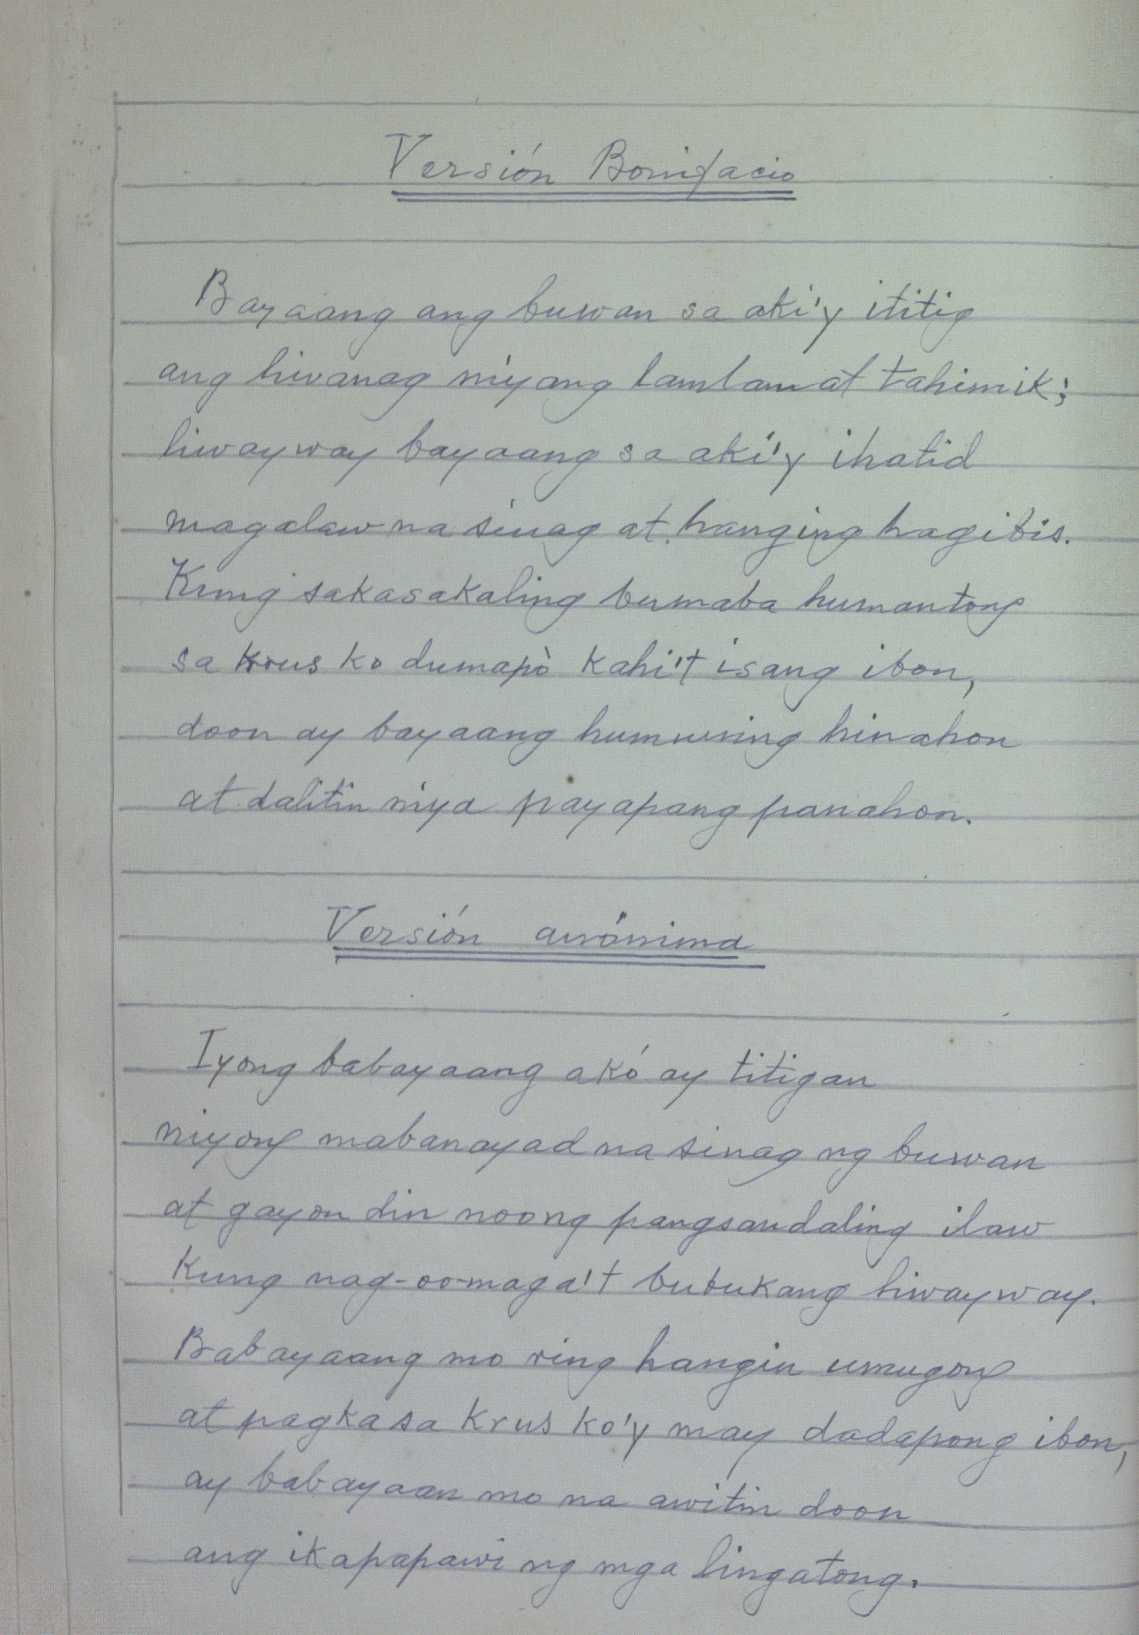 Versión Bonifacio
Bayaang ang buwan sa aki'y ititig
ang liwanag niyang lamlam at tahimik;
liwayway bayaang sa aki'y ihatid
magalaw na sinag at hanging hagibis.
Kung sakasakaling bumaba humantong
sa krus ko dumapò kahi't isang ibon,
doon ay bayaang humuning hinahon
at dalitin niya payapang panahon.
Versión anónima
Iyong babayaang akó ay titigan
niyong mabanayad na sinag ng buwan
at gayon din noong pangsandaling ilaw
Kung nag-oo-maga't bubukang liwayway.
Babayaang mo ring hangin umugong
at pagka sa Krus ko'y may dadapong ibon,
ay babayaan mo na awitin doon
ang ikapapawi ng mga lingatong.